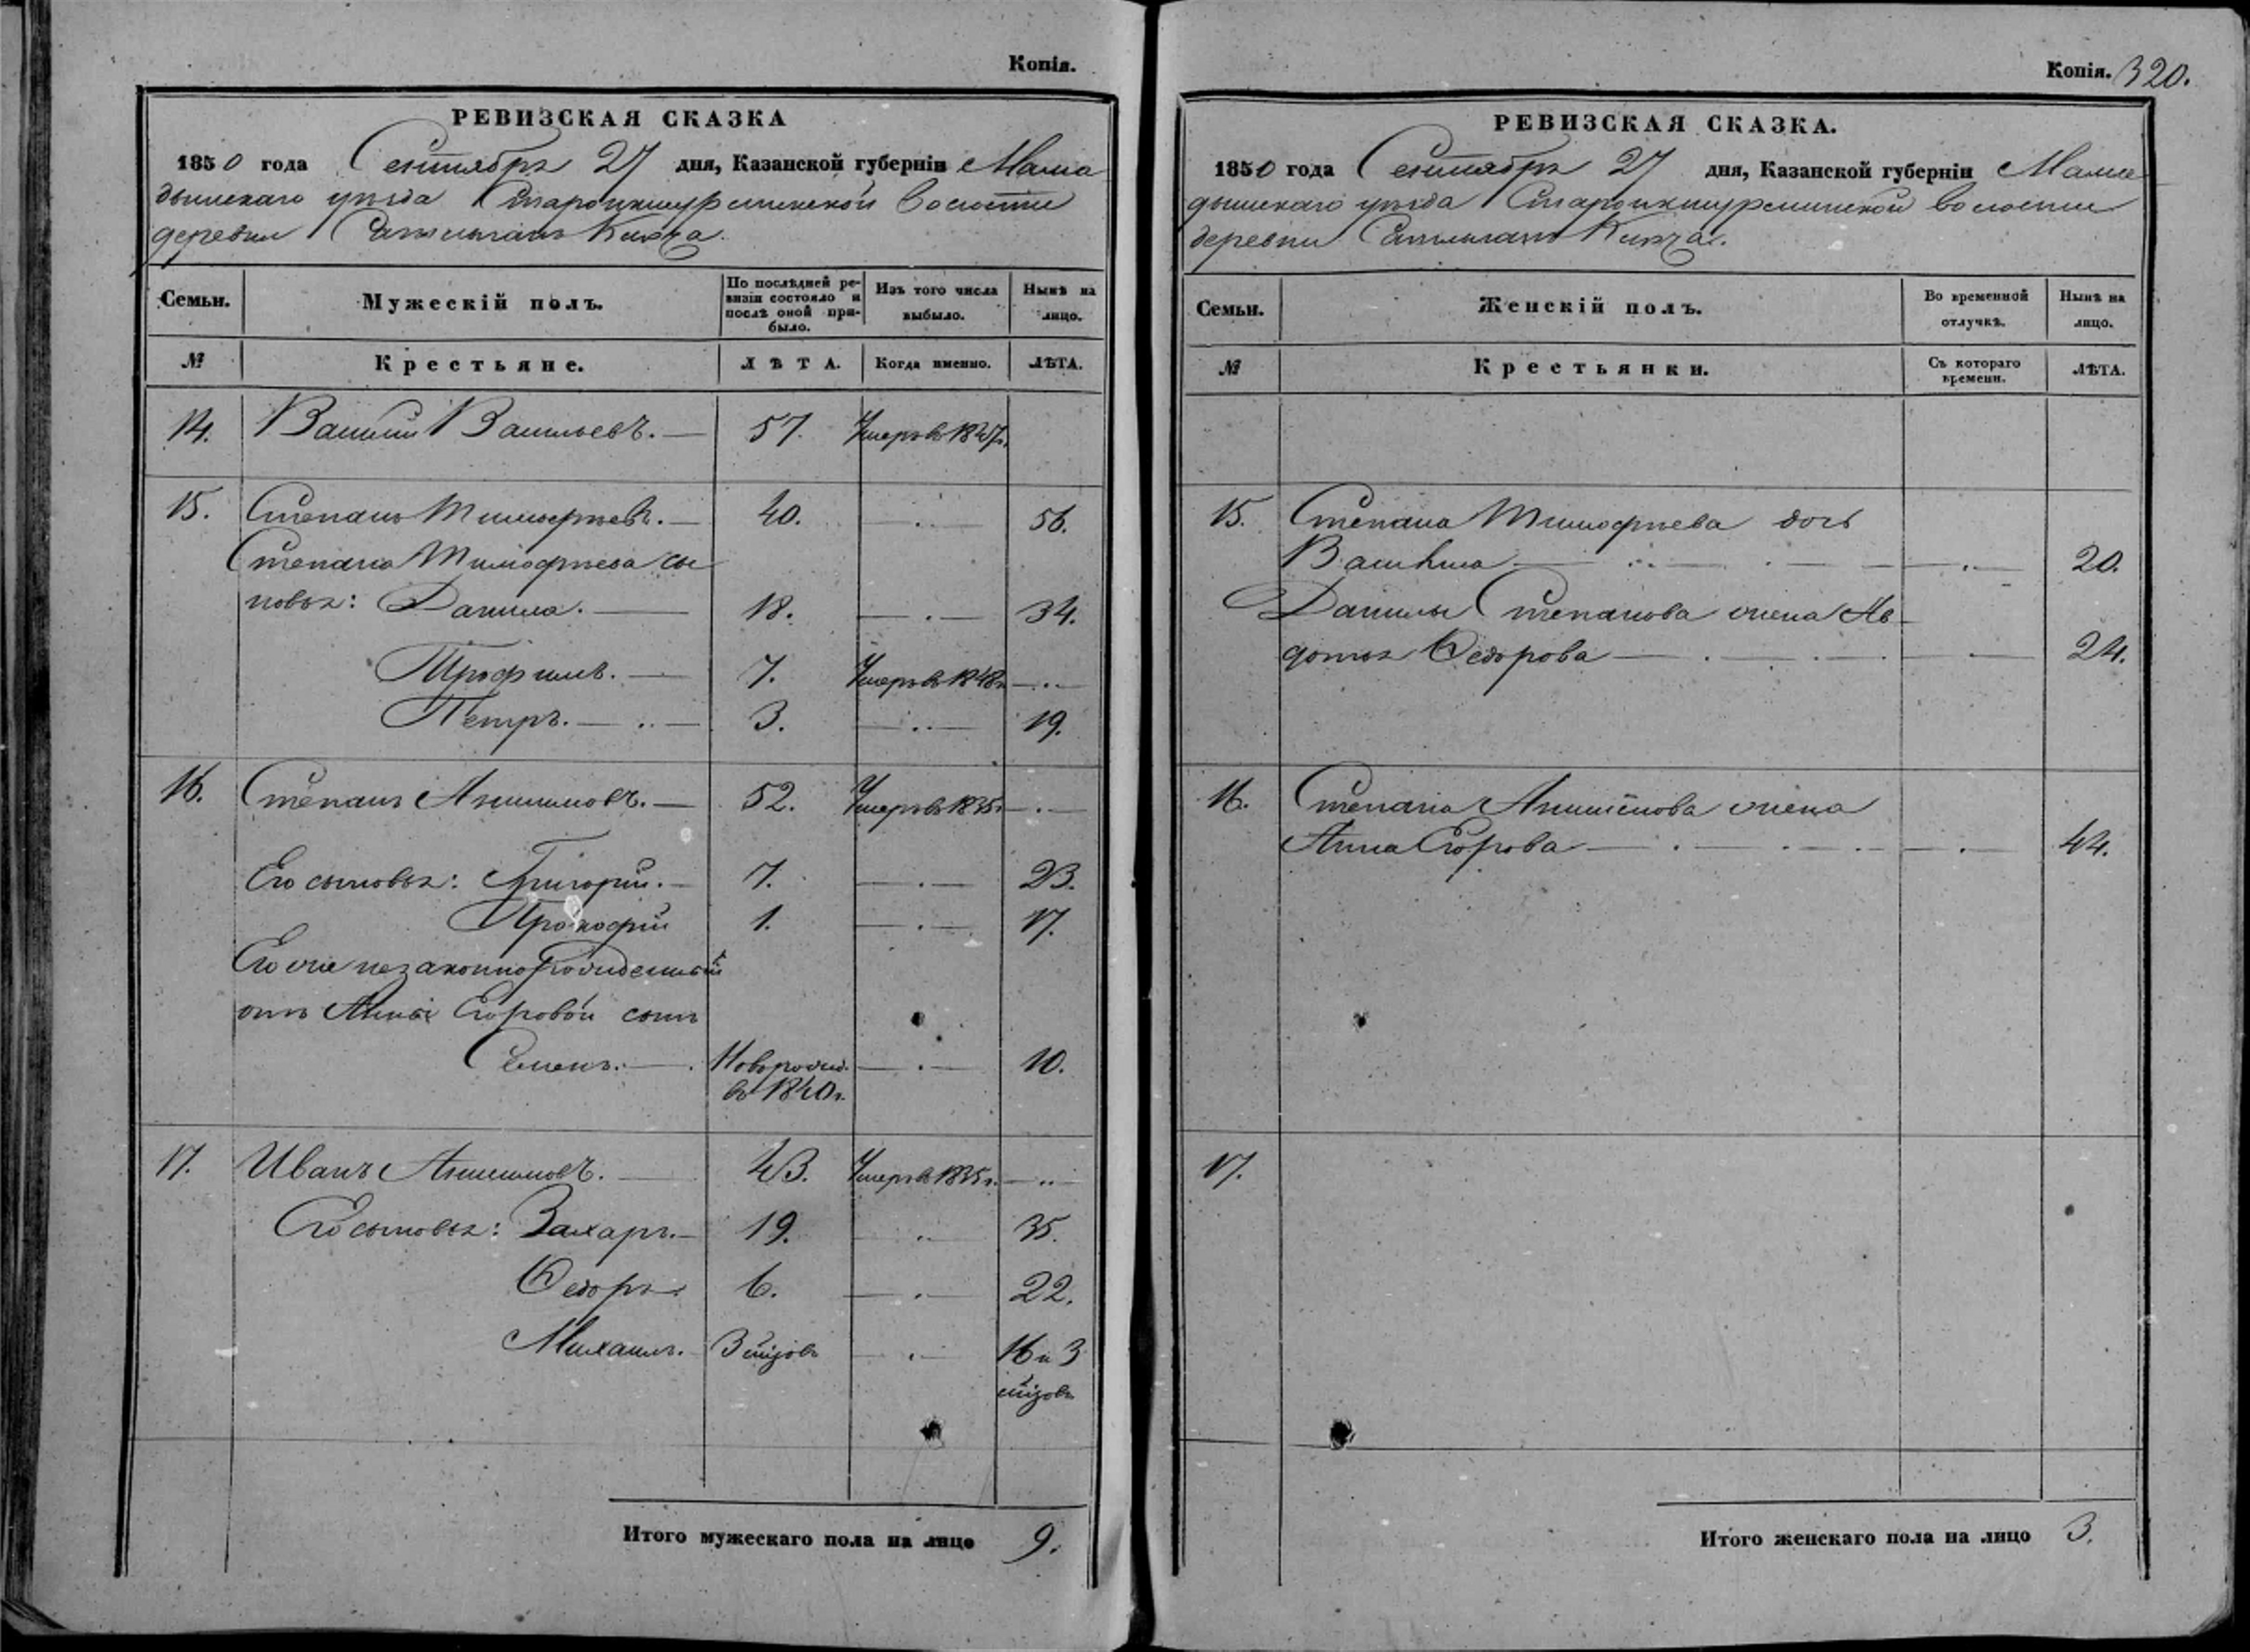 Копія.
РЕВИЗСКАЯ СКАЗКА
1850 года Сентября 27 дня, Казанской губерніи Мама
дышскаго уѣзда Староикшурминской волости
деревни Кикча.
Семьи. Мужескій полъ. По послѣдней ре-
визіи состояло и
послѣ оной при-
было. Изъ того числа
выбыло. Нынѣ на
лицо.
№ Крестьяне. ЛѢТА. Когда именно. ЛѢТА.
14. Василій Васильевъ. — 57. Умеръ въ 1847г.
15. Степанъ Тимофѣевъ. — 40. — 56.
Степана Тимофѣева сы
новья: Данила. — 18. — 34.
Трофимъ. — 7. Умеръ въ 1848г. —
Петръ. — 3. — 19.
16. Степанъ Анисимовъ. — 52. Умеръ въ 1835г. —
Его сыновья: Григорій. — 7. — 23.
Прокофій 1. — 17.
Его же незаконнорожденный
отъ Анны Егоровой сынъ
Семенъ. — Новорожд. — 10.
въ 1840г.
17. Иванъ Анисимовъ. — 43. Умеръ въ 1835г. —
Его сыновья: Захаръ. — 19. — 35.
Ѳедоръ. 6. — 22.
Михаилъ. 3 мѣсѣ — 16 и 3
Итого мужескаго пола на лицо 9.
Копія. 320.
РЕВИЗСКАЯ СКАЗКА.
1850 года Сентября 27 дня, Казанской губерніи Мама
дышскаго уѣзда Староикшурминской волости
деревни Кикча.
Семьи. Женскій полъ. Во временной
отлучкѣ. Нынѣ на
лицо.
№ Крестьянки. Съ котораго
времени. ЛѢТА.
15. Степана Тимофѣева дочь
— 20.
Данилы Степанова жена Ав
дотья Ѳедорова — 24.
16. Степана Анисимова жена
Анна Егорова — 44.
17.
Итого женскаго пола на лицо 3.